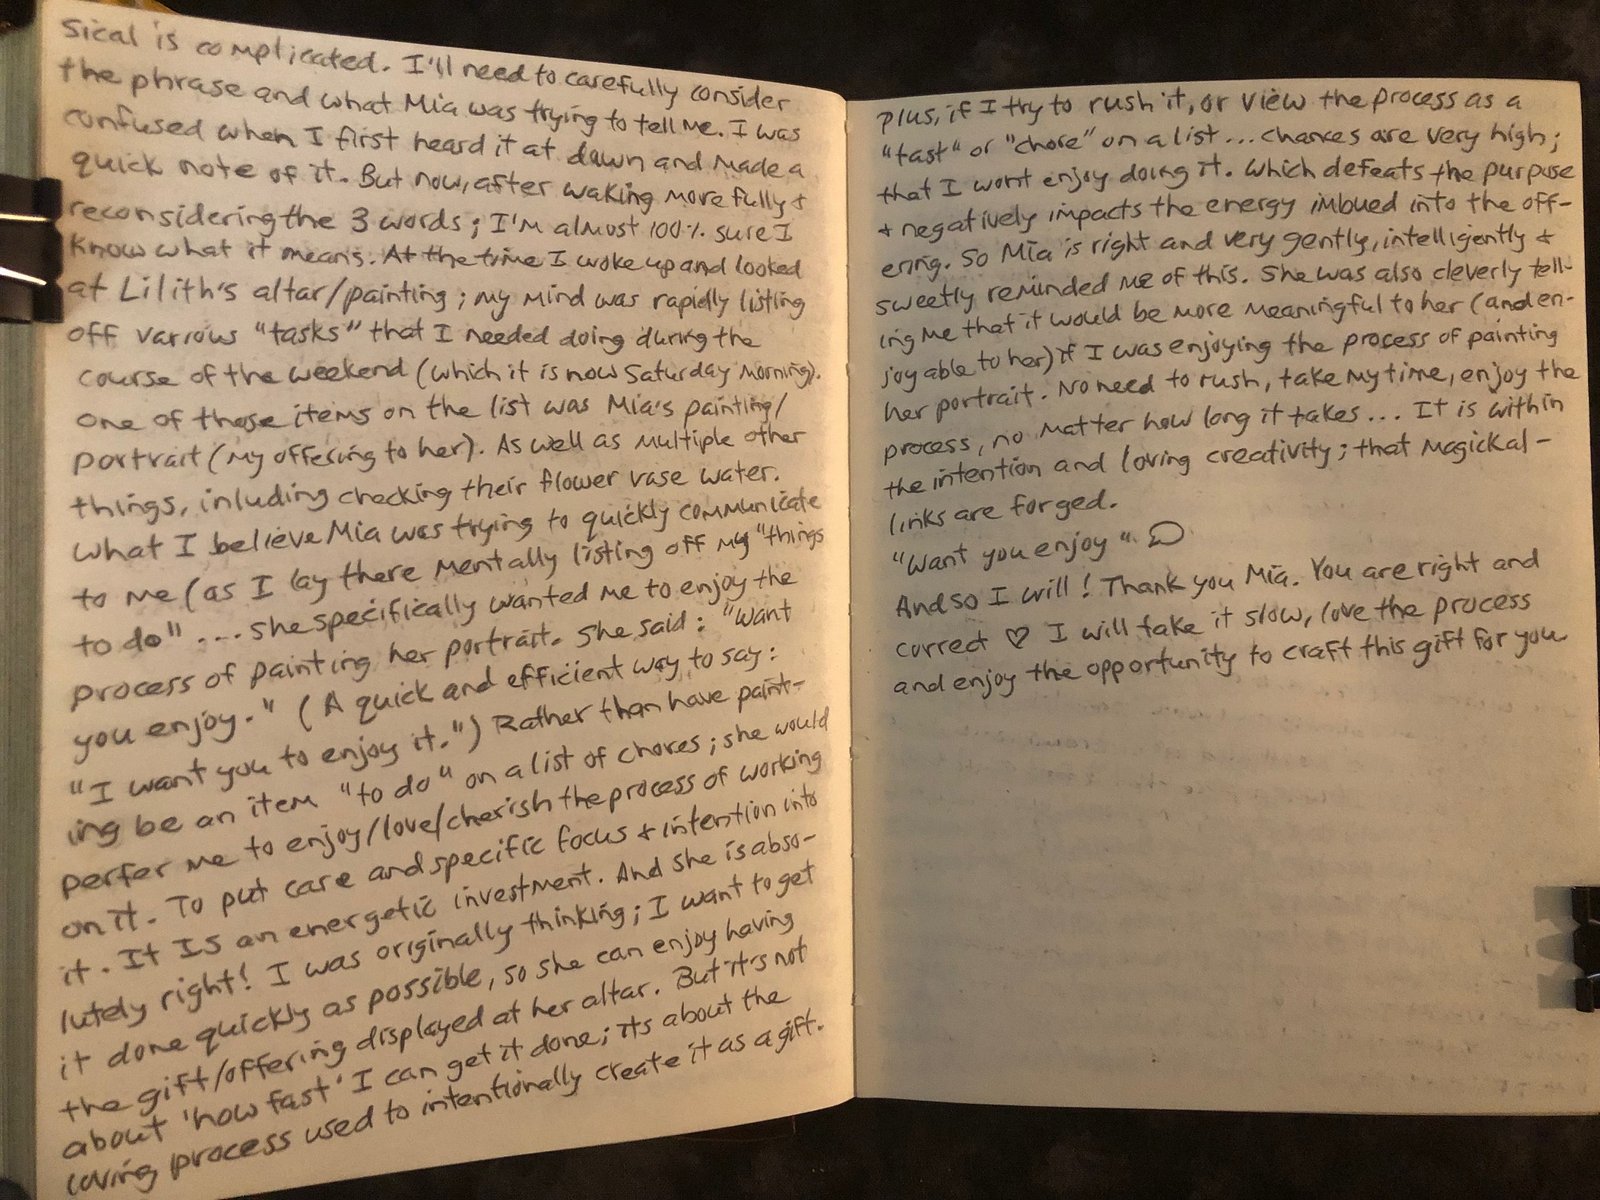 sical is complicated. I'll need to carefully consider
the phrase and what Mia was trying to tell me. I was
confused when I first heard it at dawn and made a
quick note of it. But now, after waking more fully +
reconsidering the 3 words; I'm almost 100% sure I
know what it means. At the time I woke up and looked
at Lilith's altar/painting; my mind was rapidly listing
off various "tasks" that I needed doing during the
course of the weekend (which it is now Saturday morning).
One of those items on the list was Mia's painting/
portrait (my offering to her). As well as multiple other
things, inluding checking their flower vase water.
What I believe Mia was trying to quickly communicate
to me (as I lay there mentally listing off my "things
to do" ... she specifically wanted me to enjoy the
process of painting her portrait. She said: "Want
you enjoy." (A quick and efficient way to say:
"I want you to enjoy it.") Rather than have paint-
ing be an item "to do" on a list of chores; she would
perfer me to enjoy/love/cherish the process of working
on it. To put care and specific focus + intention into
it. It IS an energetic investment. And she is abso-
lutely right! I was originally thinking; I want to get
it done quickly as possible, so she can enjoy having
the gift/offering displayed at her altar. But it's not
about 'how fast' I can get it done; its about the
loving process used to intentionally create it as a gift.
Plus, if I try to rush it, or view the process as a
"task" or "chore" on a list... chances are very high;
that I wont enjoy doing it. Which defeats the purpose
+ negatively impacts the energy imbued into the off-
ering. So Mia is right and very gently, intelligently +
sweetly reminded me of this. She was also cleverly tell-
ing me that it would be more meaningful to her (and en-
joyable to her) if I was enjoying the process of painting
her portrait. No need to rush, take my time, enjoy the
process, no matter how long it takes... It is within
the intention and loving creativity; that magickal-
links are forged.
"Want you enjoy".
And so I will! Thank you Mia. You are right and
correct ♡ I will take it slow, love the process
and enjoy the opportunity to craft this gift for you